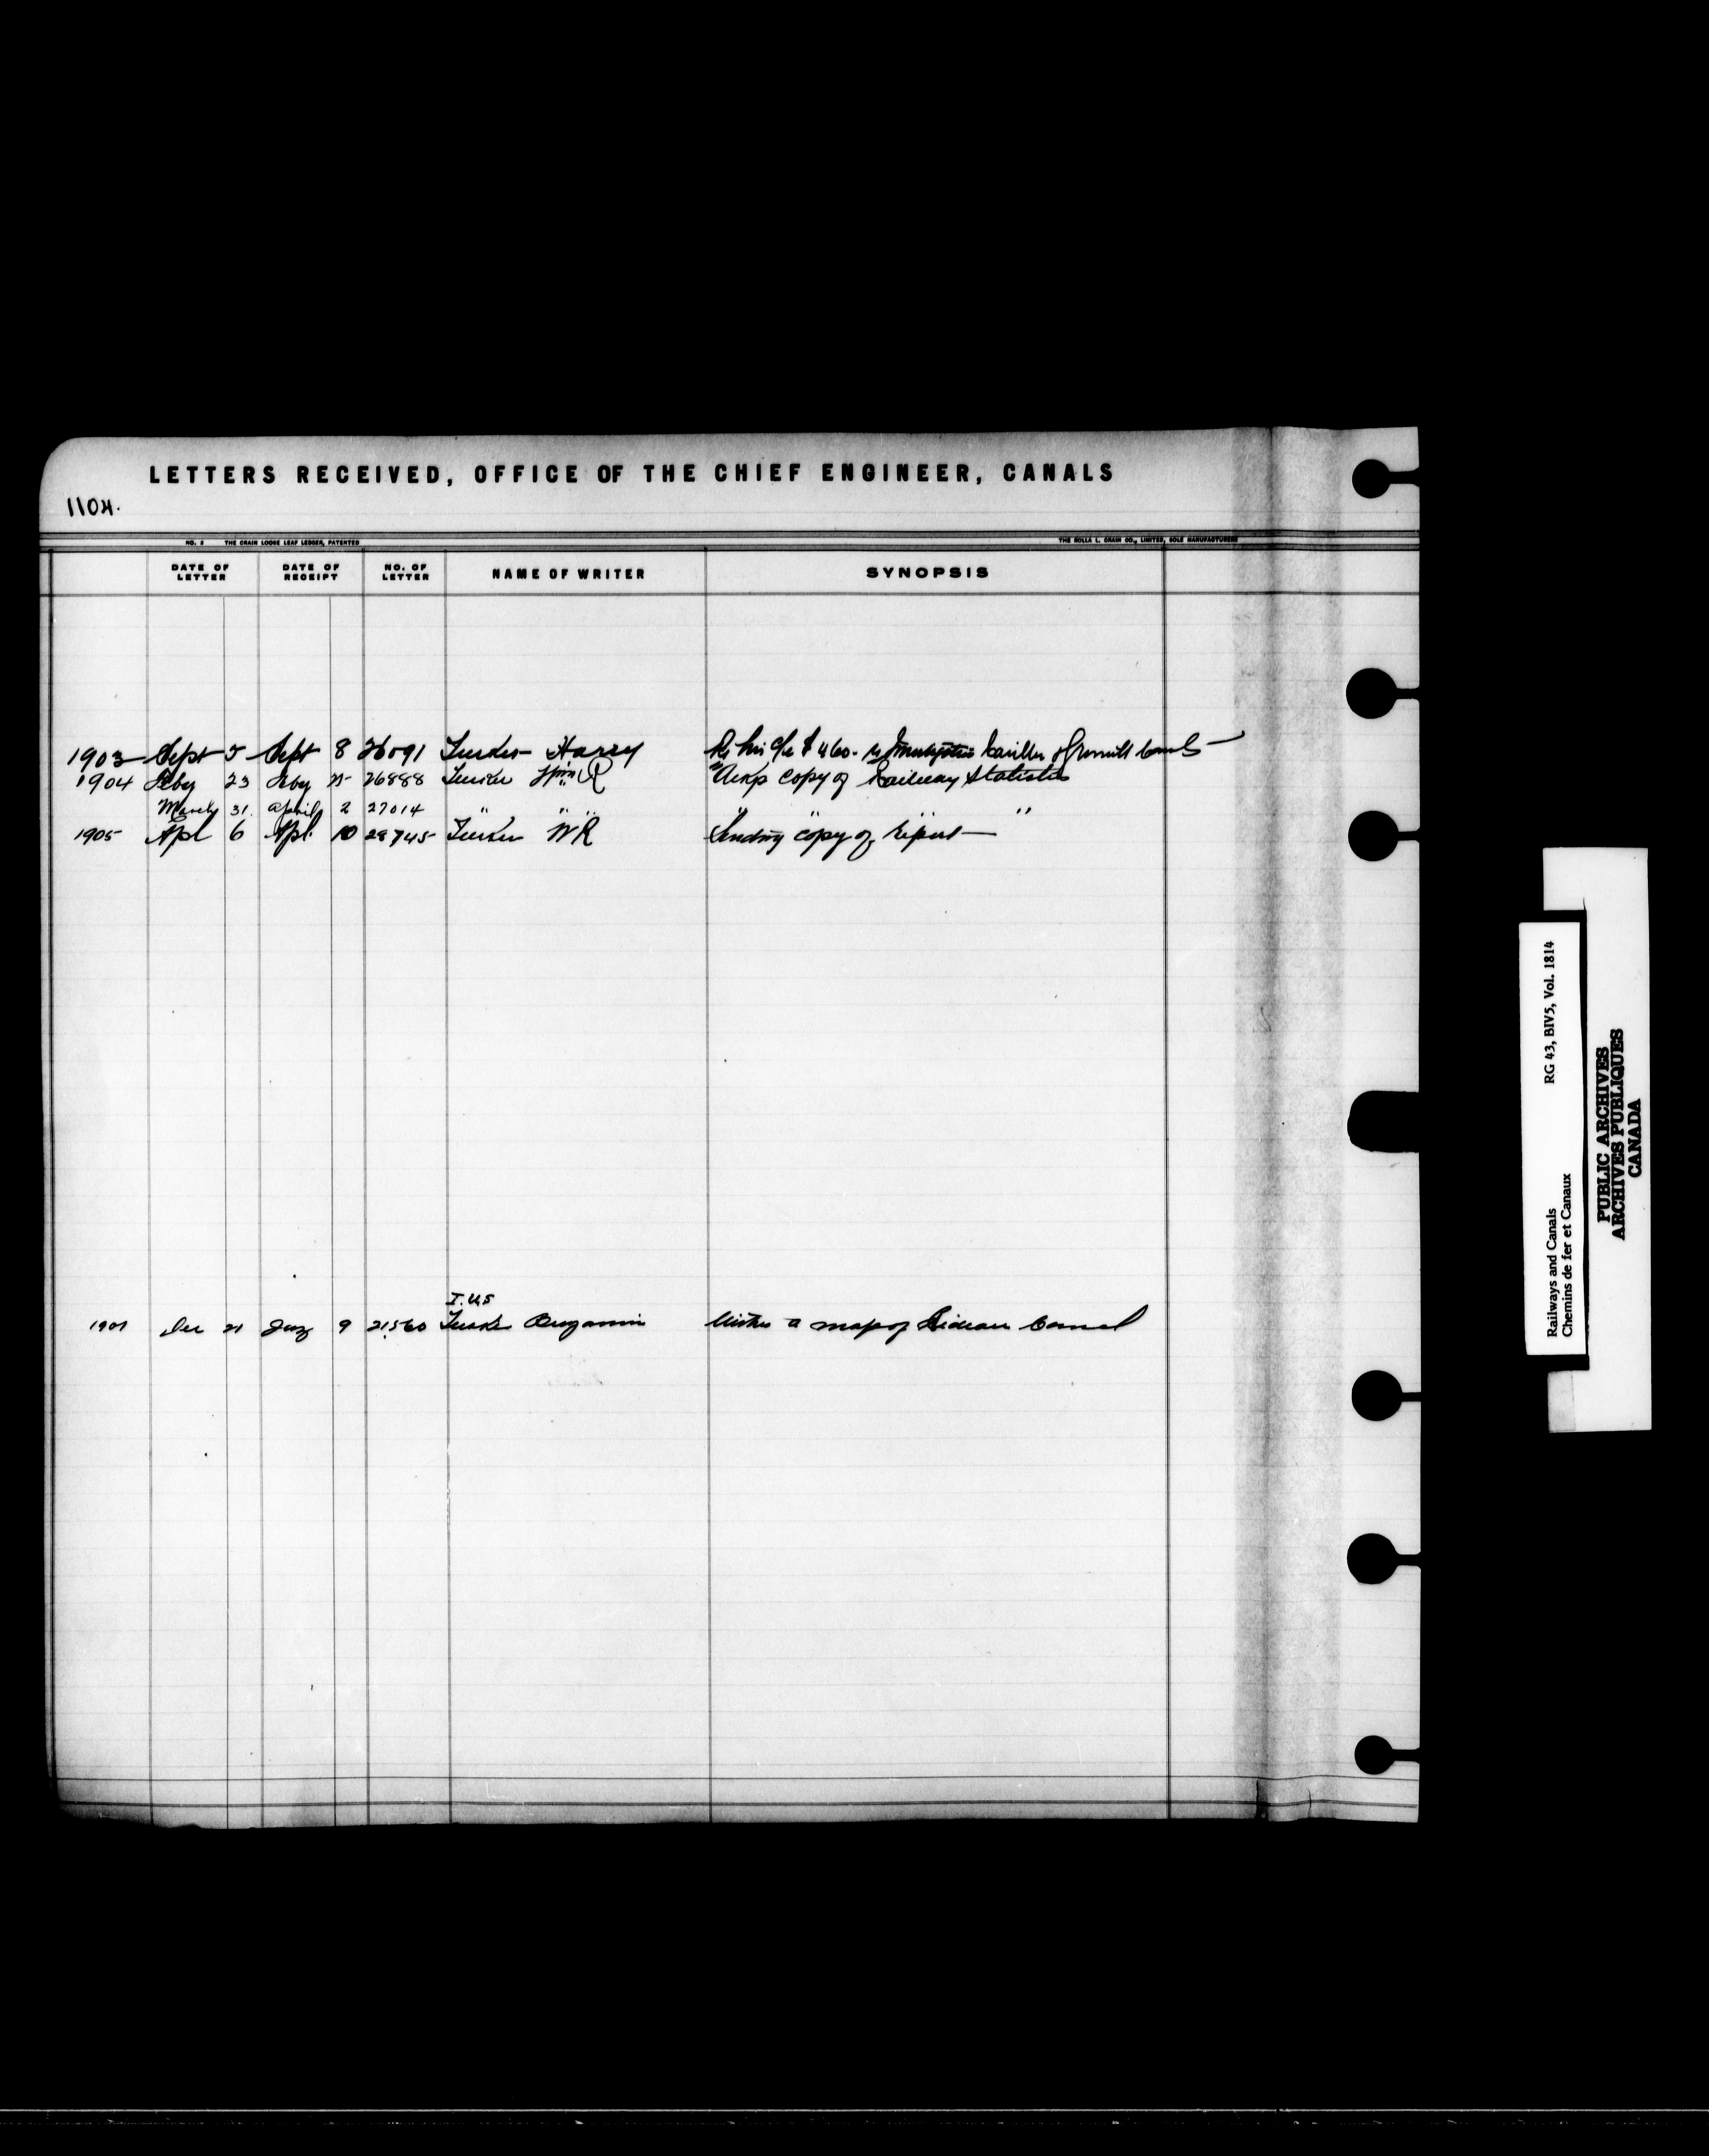 LETTERS RECEIVED, OFFICE OF THE CHIEF ENGINEER, CANALS
1104.
NO. 2 THE CRAIN LOOSE LEAF LEDGER, PATENTED THE ROLLA L. CRAIN CO., LIMITED, SOLE MANUFACTURERS
DATE OF LETTER DATE OF RECEIPT NO. OF LETTER NAME OF WRITER SYNOPSIS
1903 Sept 5 Sept 8 26091 Tucker Harry Re his a/c $460. re Carillon & Grenville Canals
1904 Feby 23 Feby 26888 Tucker Wm R copy of Railway Statistics
March 31. April 2 27014 " " " " " "
1905 Apl 6 Apl. 10 28745 Tucker W R Sending copy of report
T.U.S
Dec 21 Jany 9 21560 Tucker Benjamin Wishes a map of Rideau Canal
Railways and Canals RG 43, BIV5, Vol. 1814
Chemins de fer et Canaux
PUBLIC ARCHIVES
ARCHIVES PUBLIQUES
CANADA